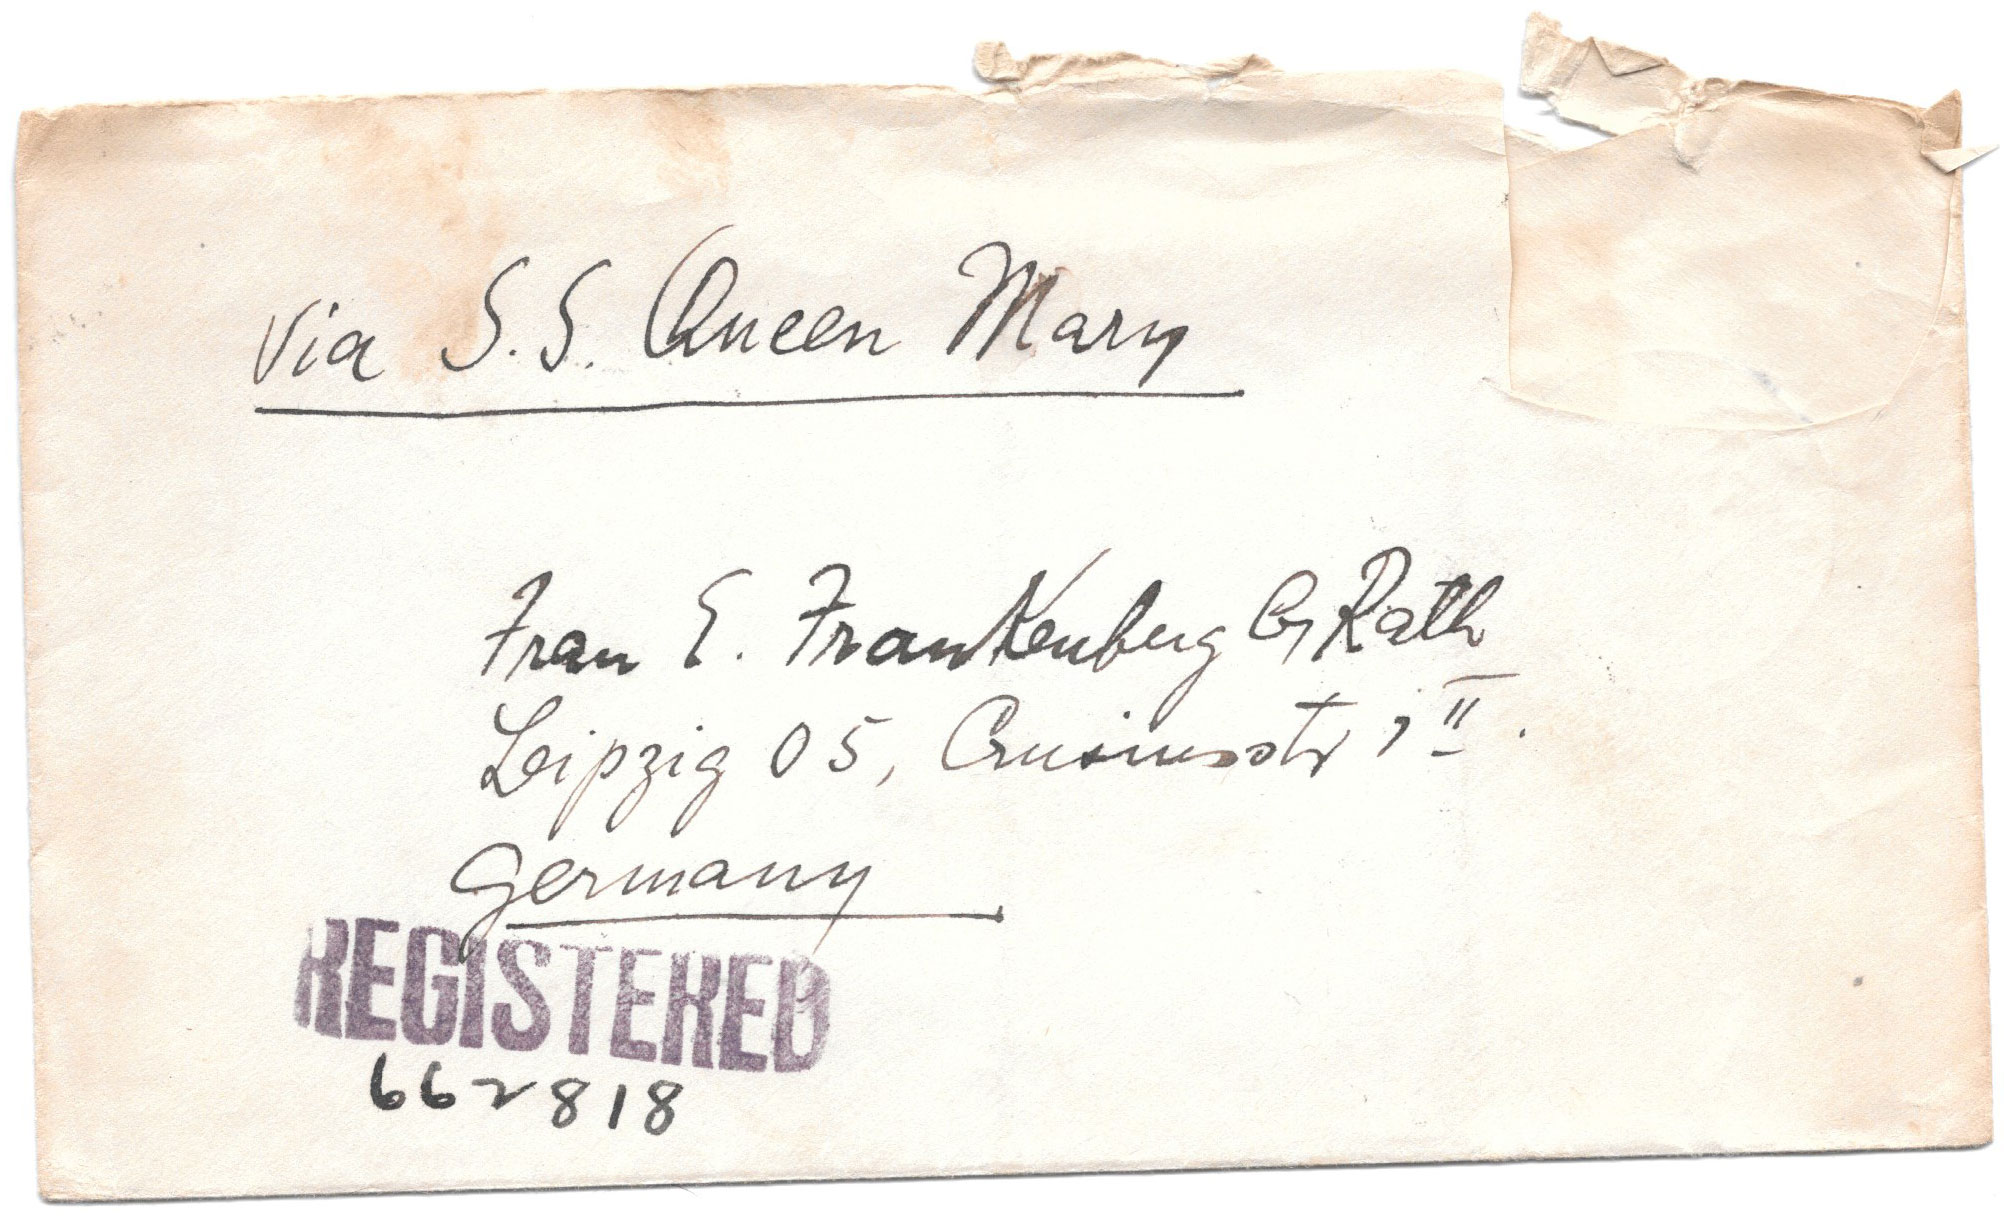 Via S.S. Queen Mary
Frau E. Frankenberg b/ Rath
Leipzig 05, Crusiusstr 1 II.
Germany
REGISTERED
662818